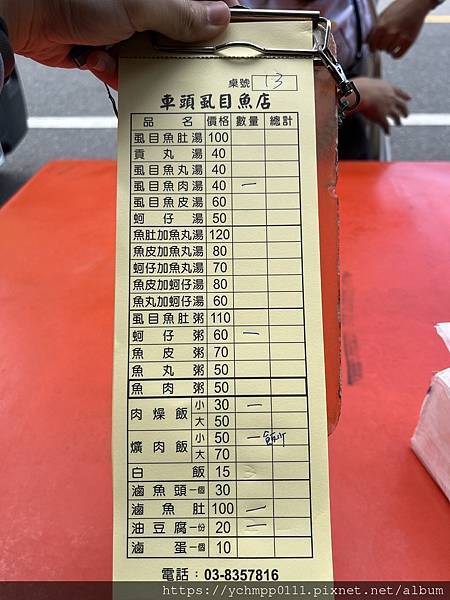 桌號 13
車頭虱目魚店
品名 價格 數量 總計
虱目魚肚湯 100
貢丸湯 40
虱目魚丸湯 40
虱目魚肉湯 40 一
虱目魚皮湯 60
蚵仔湯 50
魚肚加魚丸湯 120
魚皮加魚丸湯 80
蚵仔加魚丸湯 70
魚皮加蚵仔湯 80
魚丸加蚵仔湯 60
虱目魚肚粥 110
蚵仔粥 60 一
魚皮粥 70
魚丸粥 50
魚肉粥 50
肉燥飯 小 30 一
大 50
爌肉飯 小 50 一 飯少
大 70
白飯 15
滷魚頭一個 30
滷魚肚 100 一
油豆腐一份 20 一
滷蛋一個 10
電話：03-8357816
https://ychmpp0111.pixnet.net/album